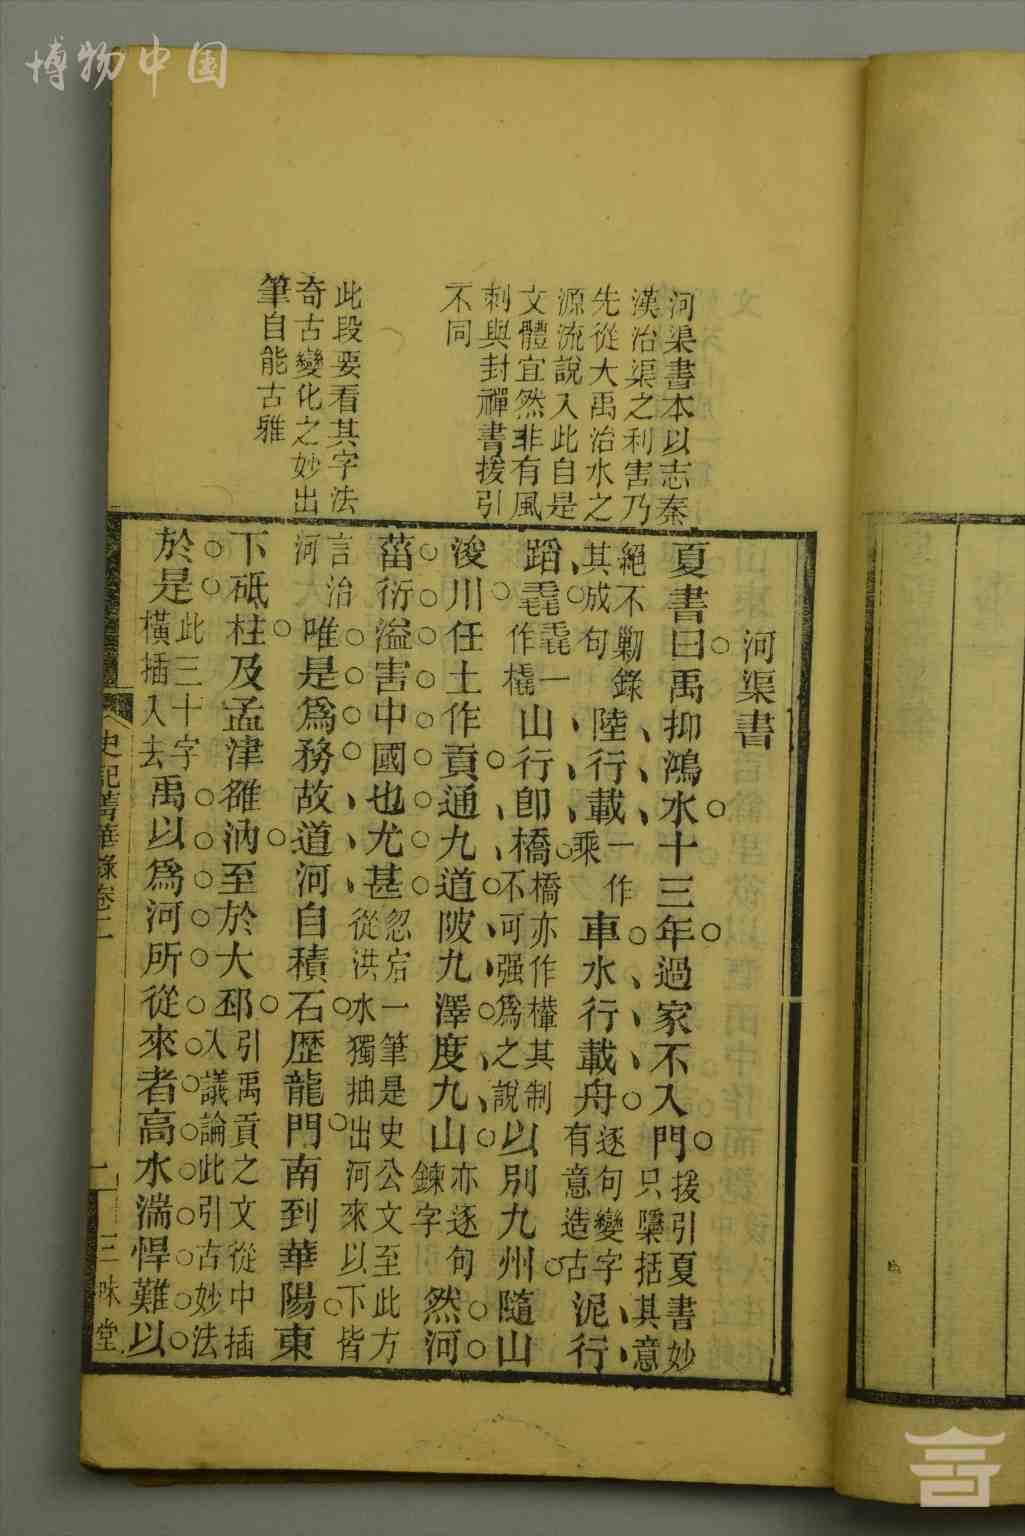 博物中国
河渠書本以志秦
漢治渠之利害乃
先從大禹治水之
源流說入此自是
文體宜然非有風
刺與封禪書援引
不同
此段要看其字法
奇古變化之妙出
筆自能古雅
河渠書
夏書曰禹抑鴻水十三年過家不入門援引夏書妙只檃括其意
絕不勦錄其成句陸行載一作乘車水行載舟逐句變字有意造古泥行
蹈毳毳一作橇山行卽橋橋亦作檋其制不可强爲之說以別九州隨山
浚川任土作貢通九道陂九澤度九山亦逐句鍊字然河
菑衍溢害中國也尤甚忽宕一筆是史公文至此方從洪水獨抽出河來以下皆
言治河唯是爲務故道河自積石歷龍門南到華陽東
下砥柱及孟津雒汭至於大邳引禹貢之文從中插入議論此引古妙法
於是此三十字橫插入去禹以爲河所從來者高水湍悍難以
史記菁華錄卷二
三味堂